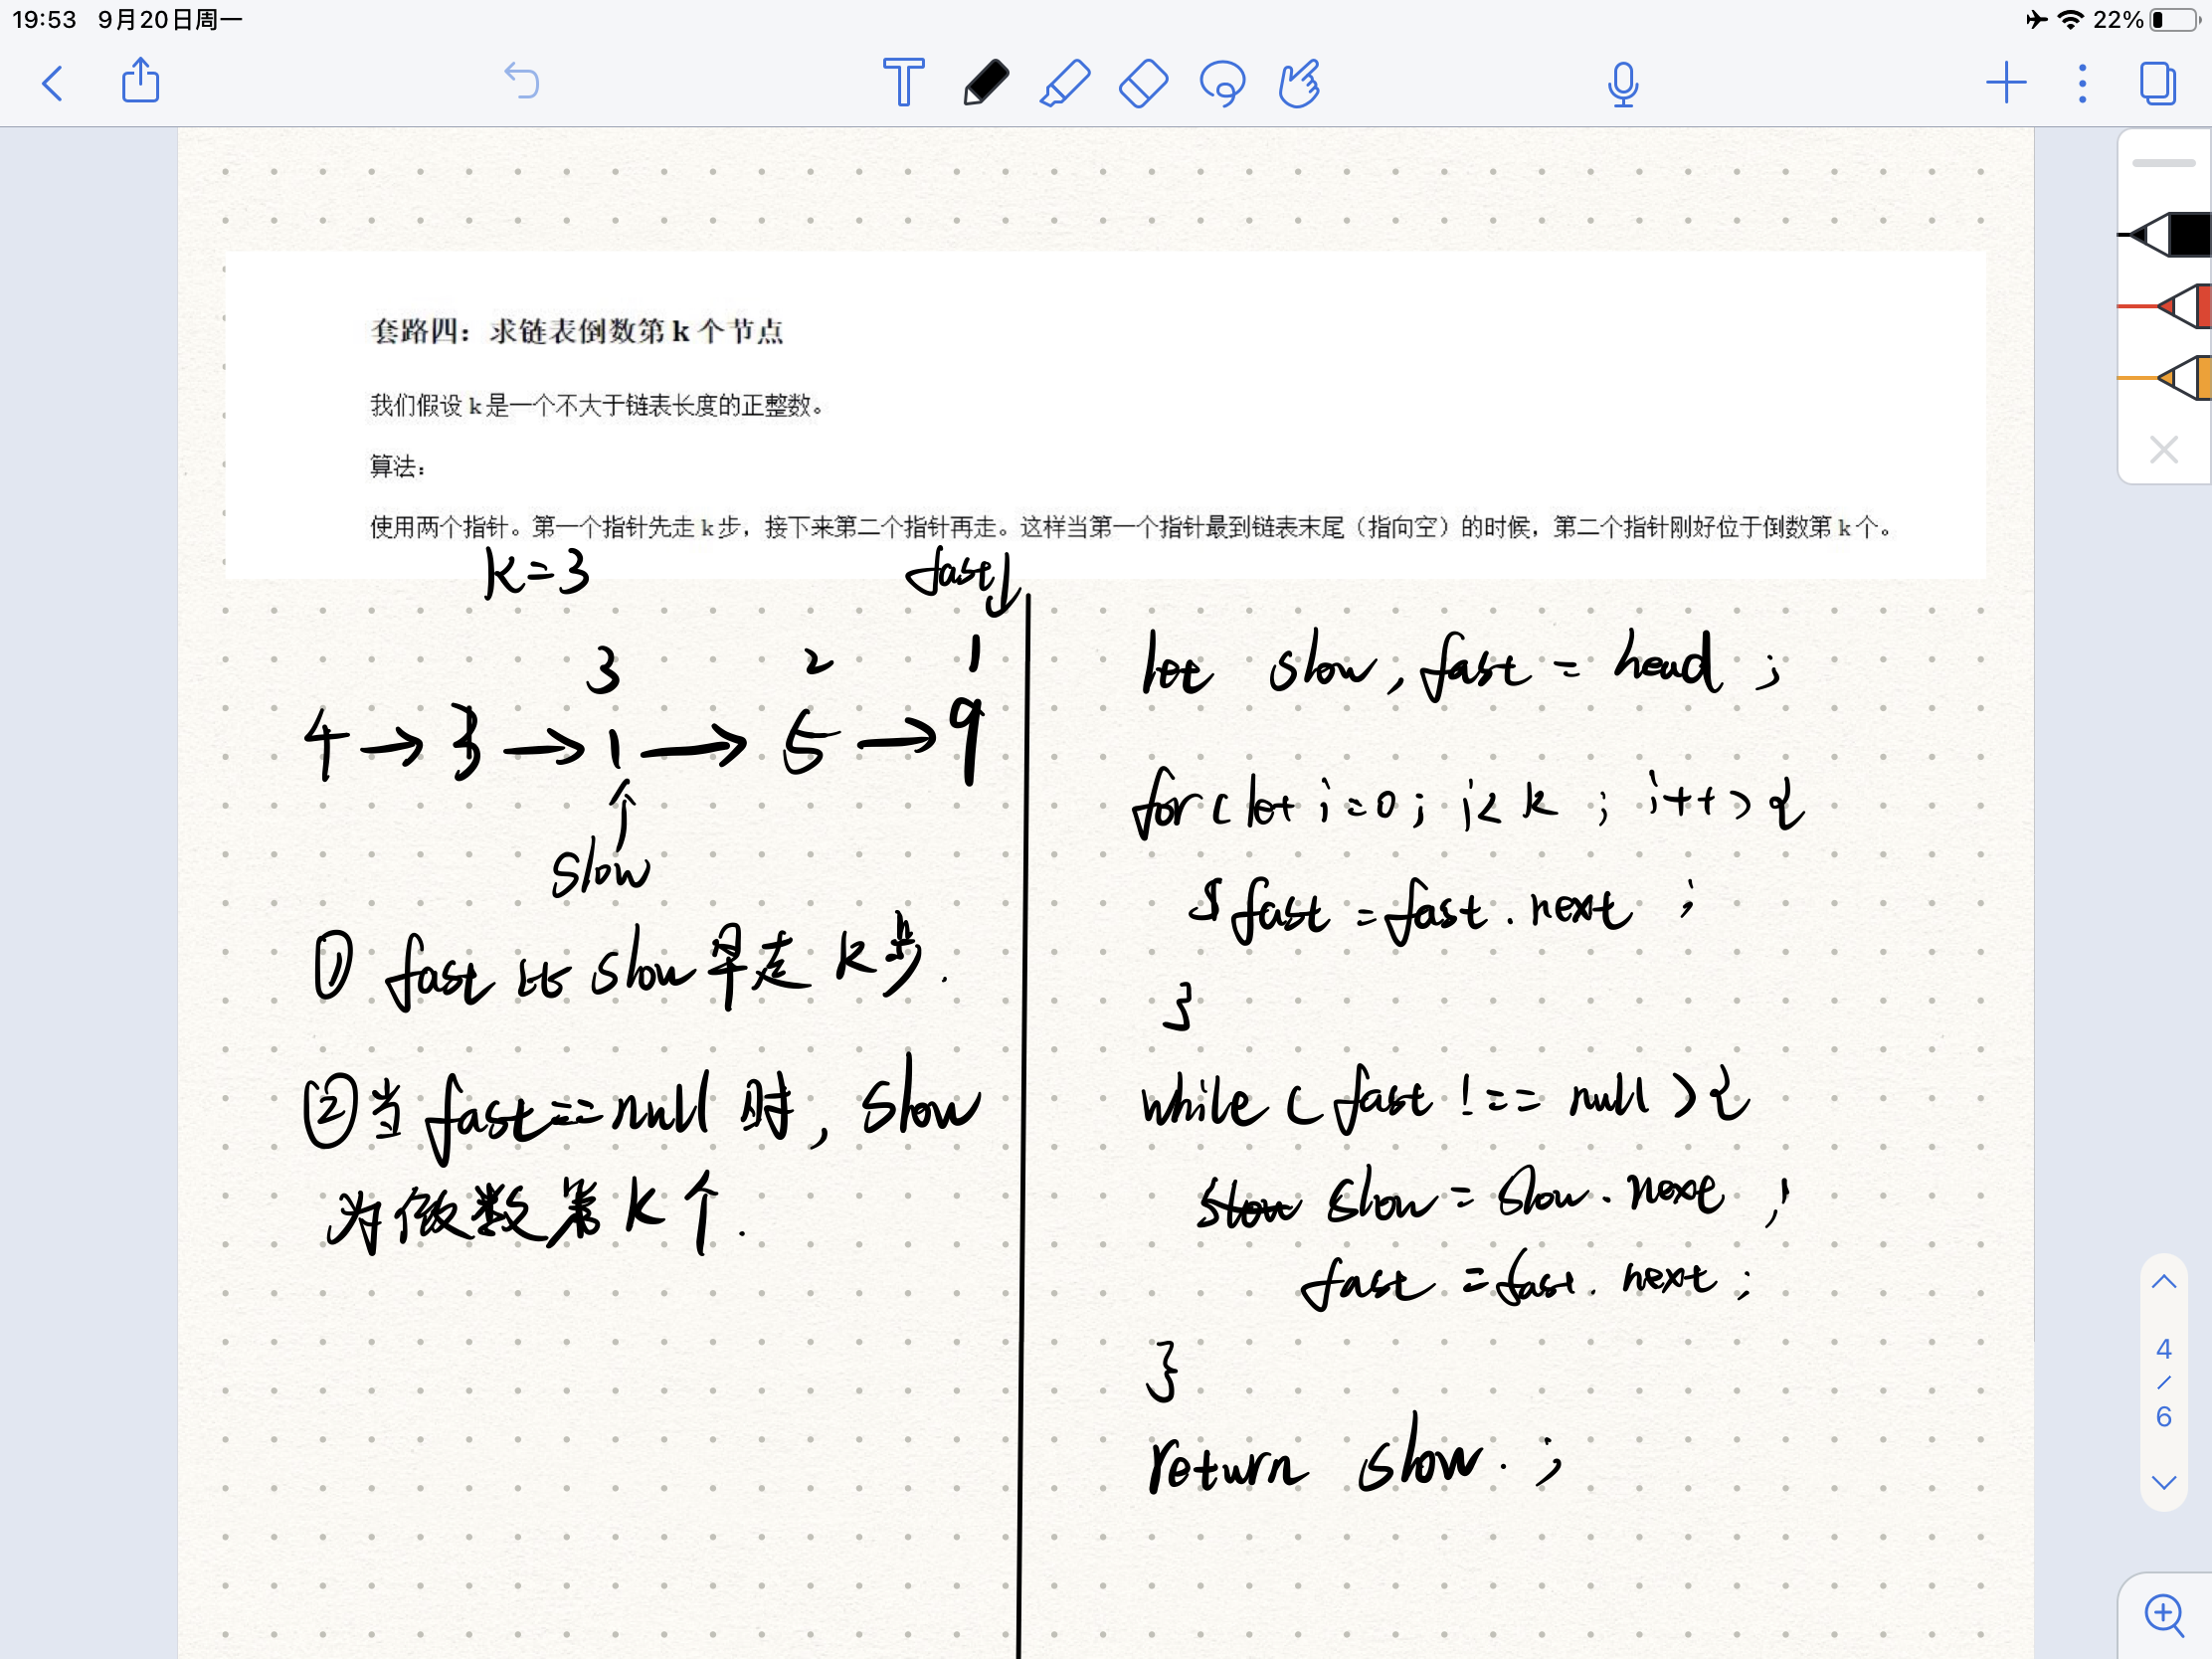 19:53 9月20日周一
22%
套路四：求链表倒数第 k 个节点
我们假设 k 是一个不大于链表长度的正整数。
算法：
使用两个指针。第一个指针先走 k 步，接下来第二个指针再走。这样当第一个指针最到链表末尾（指向空）的时候，第二个指针刚好位于倒数第 k 个。
k=3
fast↓
3 2 1
4 → 3 → 1 → 5 → 9
↑
slow
① fast 比 slow 早走 k 步.
② 当 fast==null 时, slow
为倒数第 k 个.
let slow, fast = head ;
for ( let i=0 ; i< k ; i++ ) {
fast = fast . next ;
}
while ( fast !== null ) {
slow = slow . next ;
fast = fast . next ;
}
return slow . ;
4
/
6